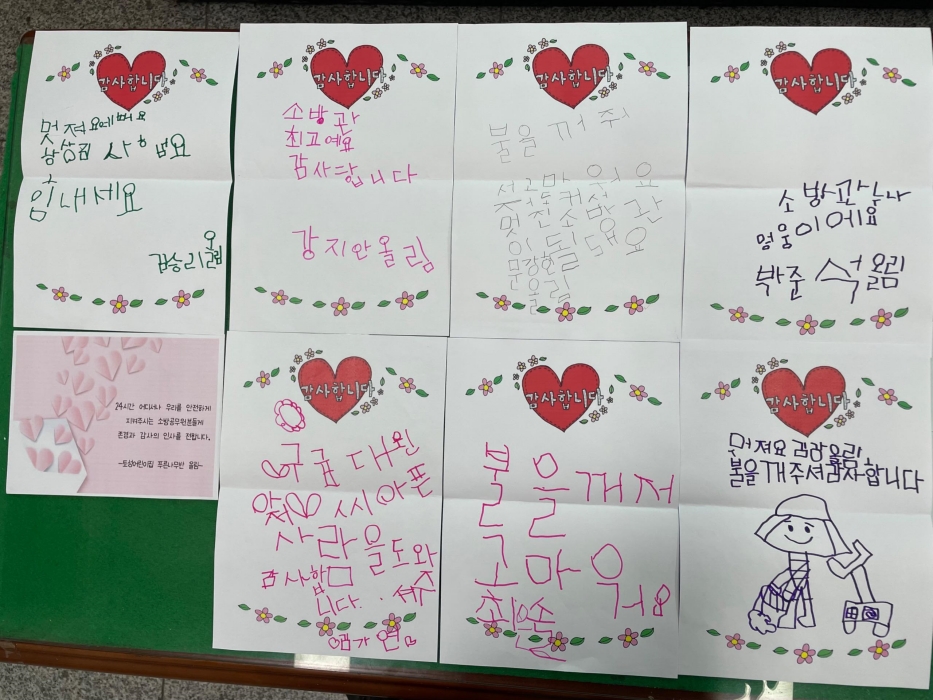 감사합니다
멋져요에뻐요
항상김 사합법요
힘내세요
김승리올림
감사합니다
소방관
최고예요
감사합니다
강지안올림
감사합니다
불을 꺼 주
고마워요
멋진소방관
이될
문강호
올림
감사합니다
소방관누나
멍웅이에요
박준석 올림
24시간 어디서나 우리를 안전하게
지켜주시는 소방공무원분들께
존경과 감사의 인사를 전합니다.
-토성어린이집 푸른나무반 올림-
감사합니다
구급대원
아픈
사라을도와
감사합
니다..
감사합니다
불을깨저
고마워
거요
감사합니다
멋져요 올림
불을깨주셔감사합니다